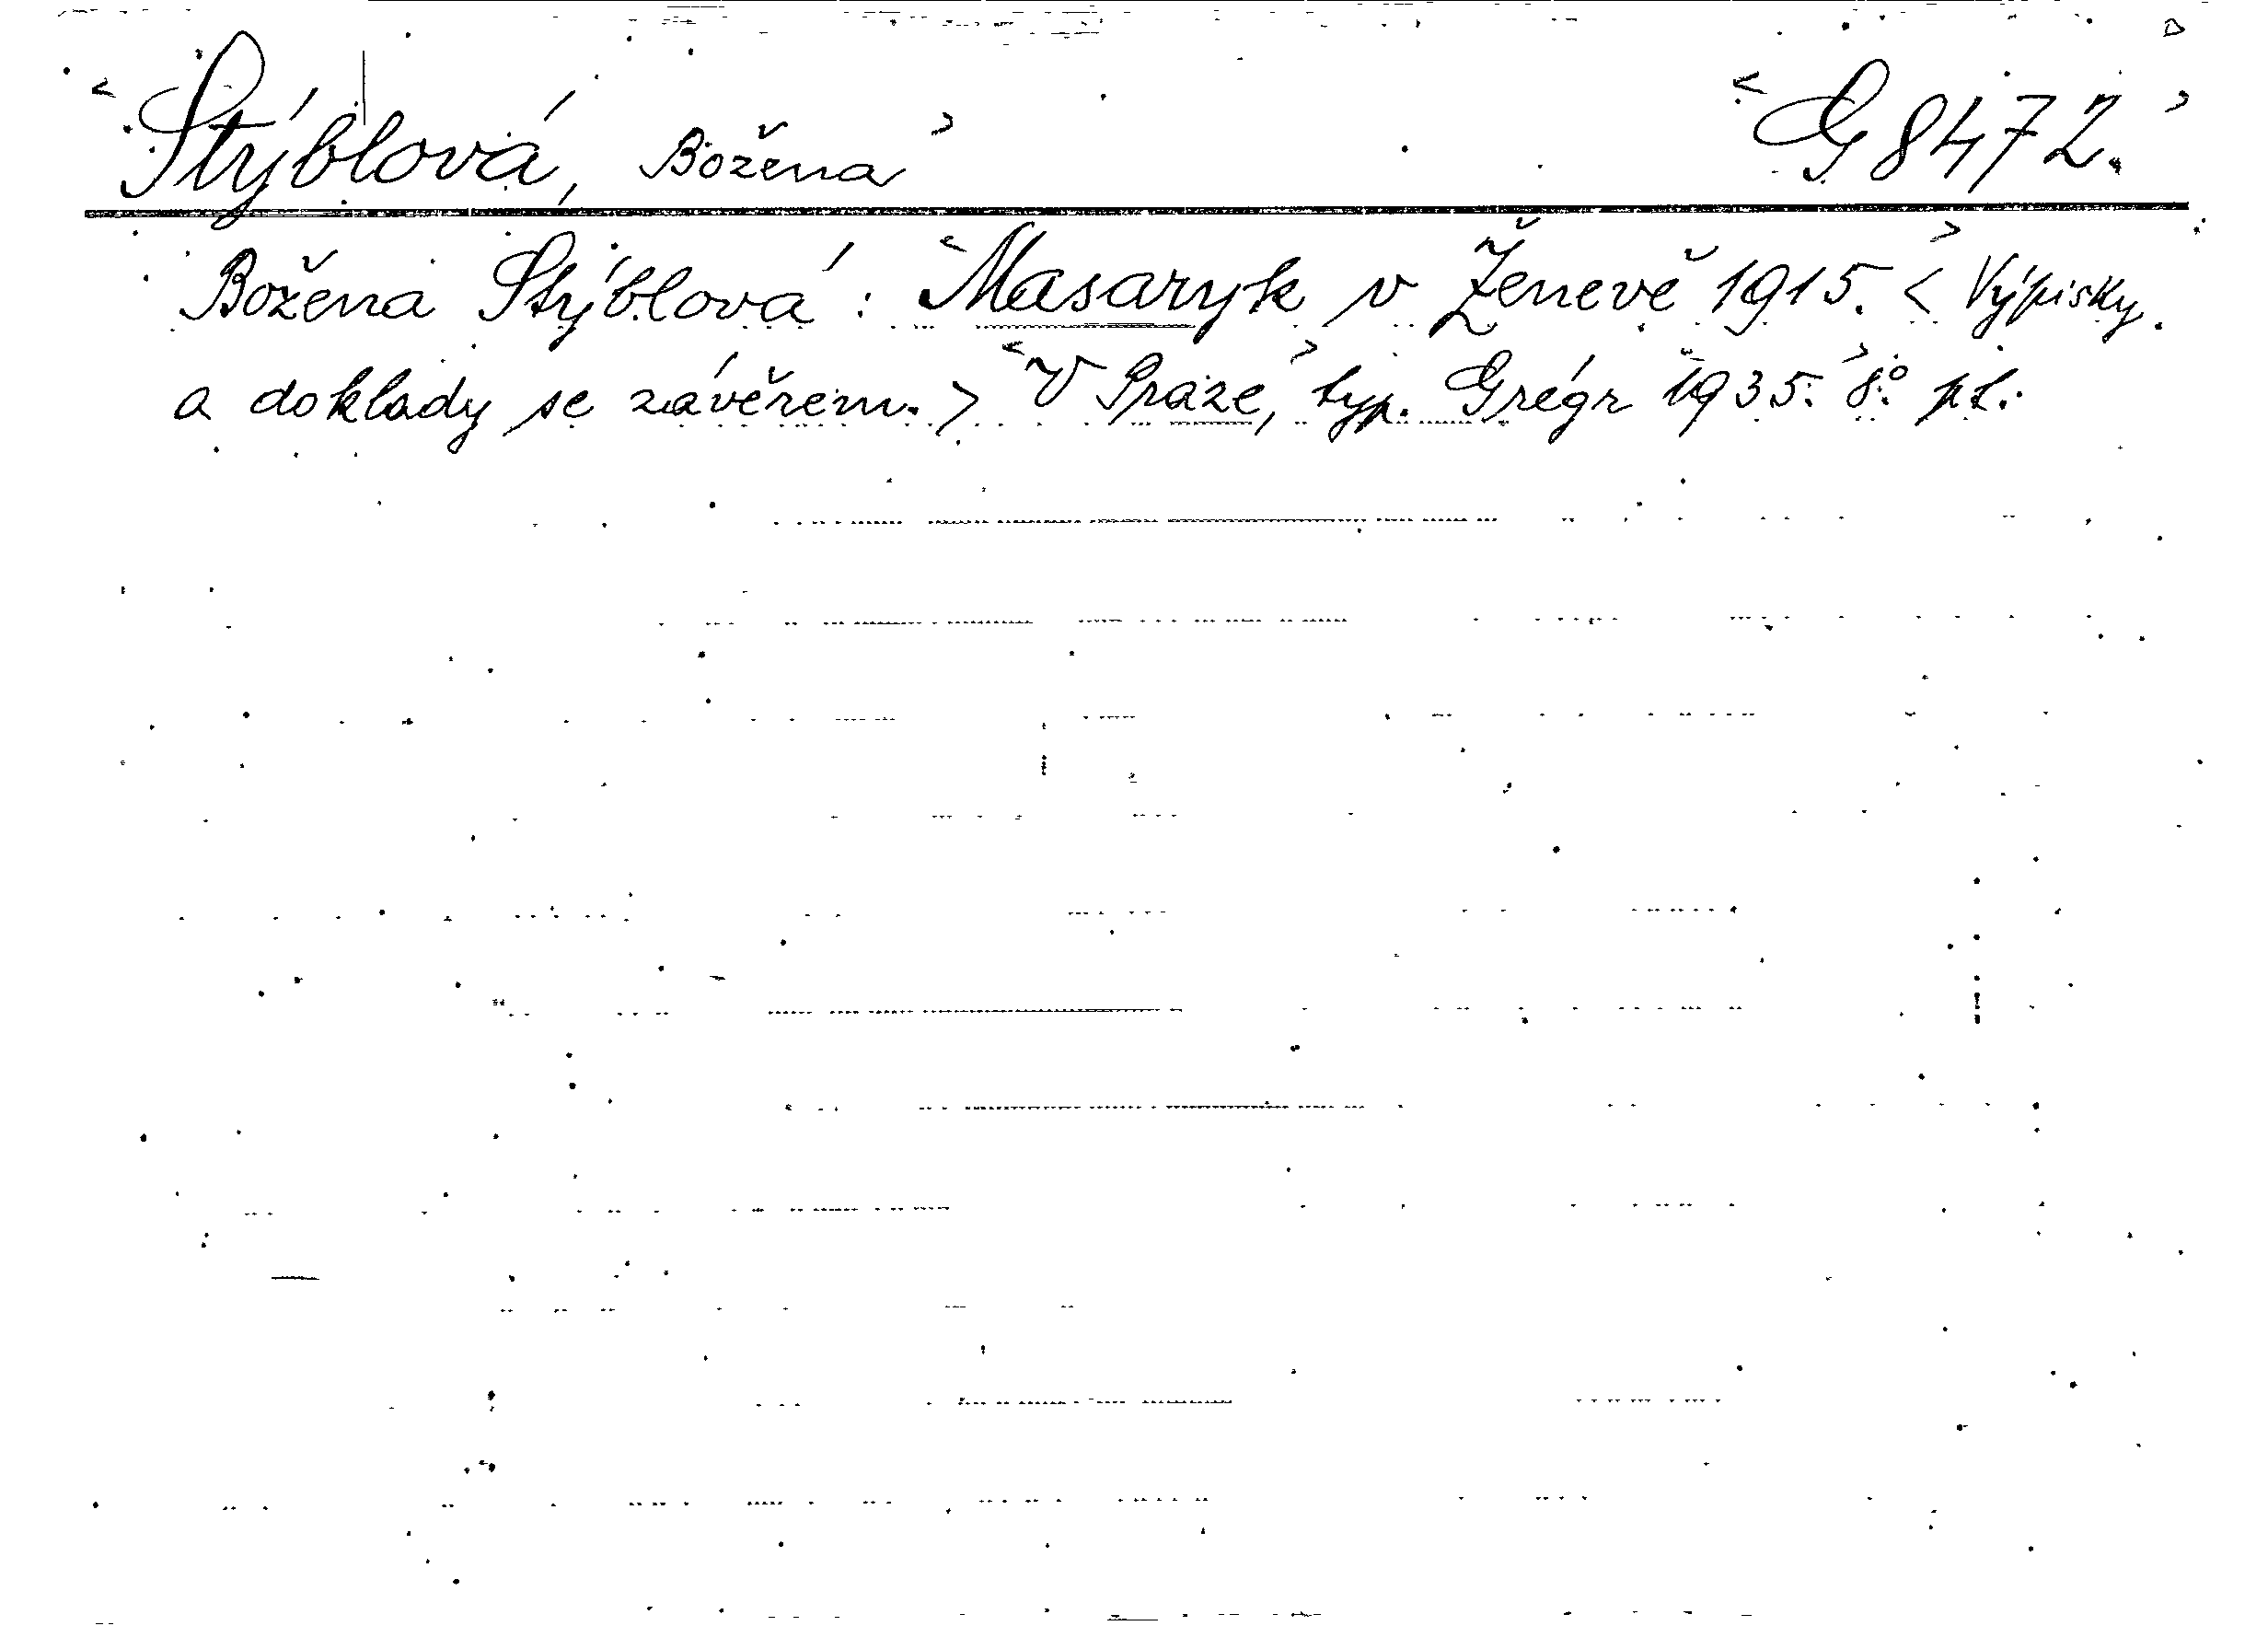 <Stýblová, Božena> <G 8472.>
Božena Stýblová: <Masaryk v Ženevě 1915.> < Výpisky
a doklady se závěrem. > <V Praze,> typ. Grégr <1935.> 8.° pl.